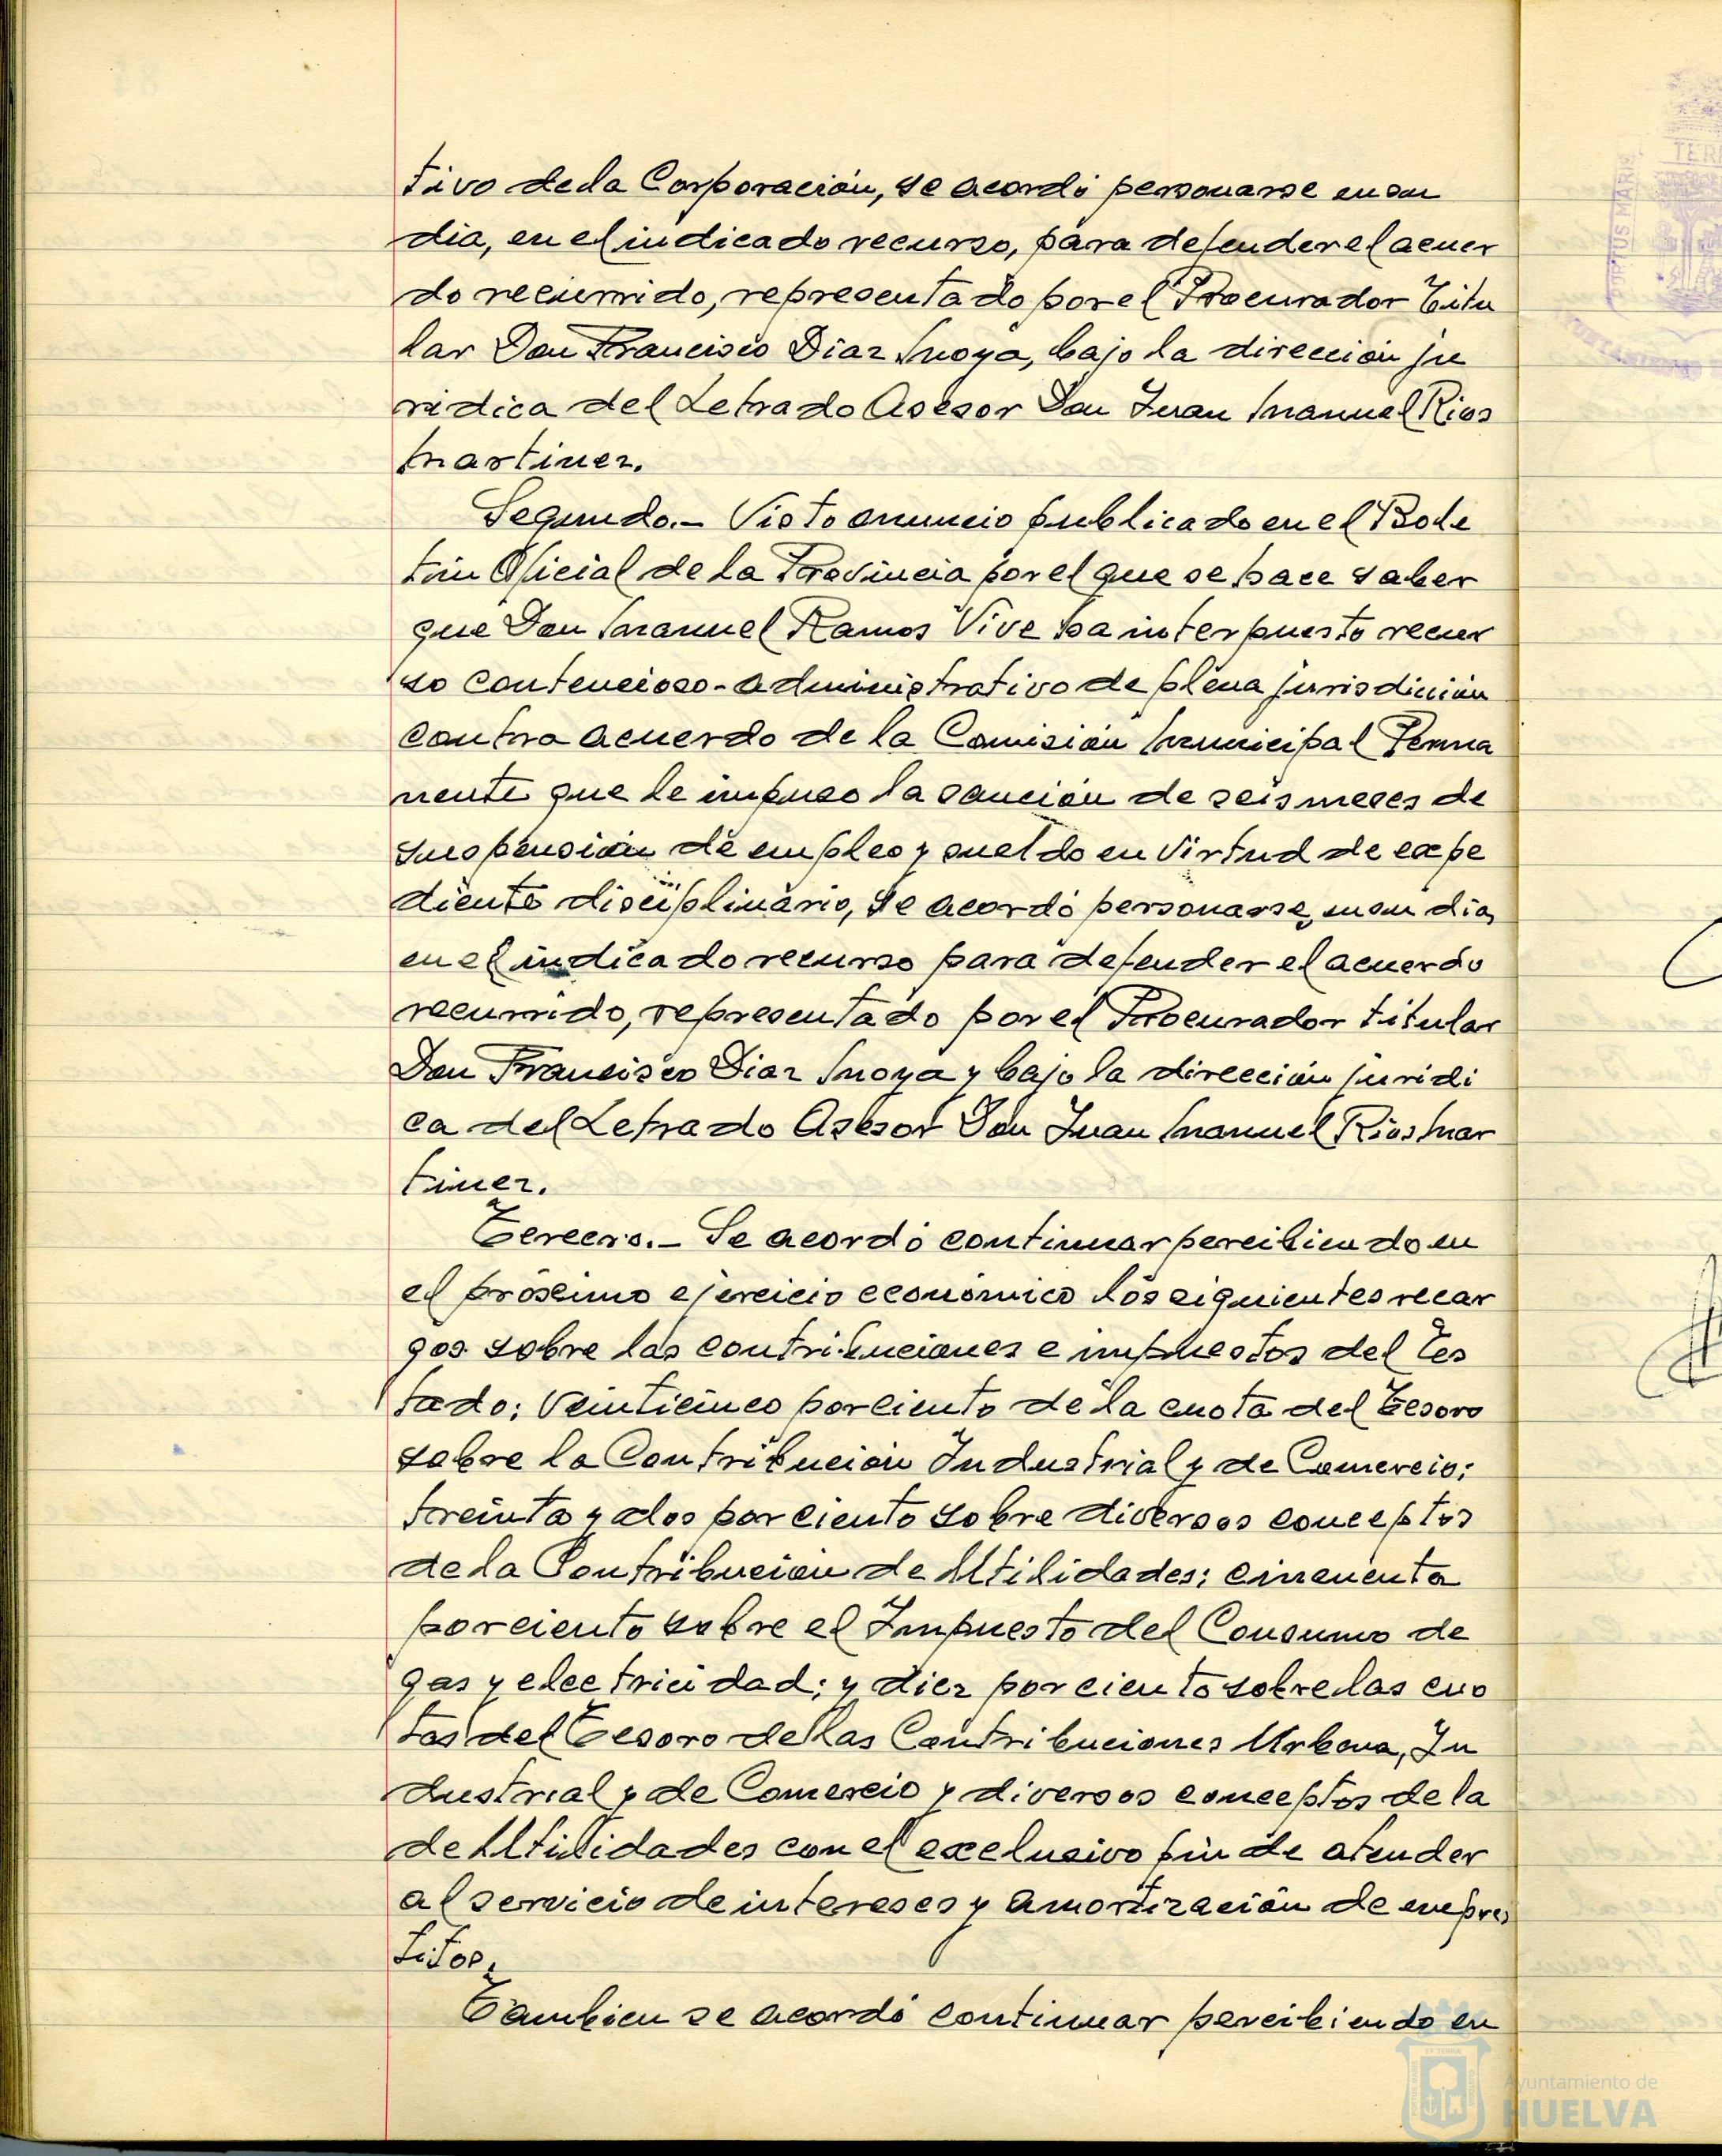 tivo dela Corporación, se acordó personarse en su
día, en el indicado recurso, para defender el acuer
do recurrido, representado por el Procurador Titu
lar Don Francisco Díaz Moya, bajo la dirección ju
rídica del Letrado Asesor Don Juan Manuel Rios
Martinez.
Segundo.- Visto anuncio publicado en el Bole
tín Oficial de la Provincia por el que se hace saber
que Don Manuel Ramos Vive ha interpuesto recur
so contencioso-administrativo de plena jurisdicción
contra acuerdo de la Comisión Municipal Perma
nente que le impuso la sanción de seis meses de
suspensión de empleo y sueldo en virtud de expe
diente disciplinario, se acordó personarse, en su día,
en el indicado recurso para defender el acuerdo
recurrido, representado por el Procurador titular
Don Francisco Diaz Moya y bajo la dirección juridi
ca del Letrado Asesor Don Juan Manuel Rios Mar
tinez.
Tercero.- Se acordó continuar percibiendo en
el próximo ejercicio económico los siguientes recar
gos sobre las contribuciones e impuestos del Es
tado: Veinticinco por ciento de la cuota del Tesoro
sobre la Contribución Industrial y de Comercio;
treinta y dos por ciento sobre diversos conceptos
de la Contribución de Utilidades; cincuenta
por ciento sobre el Impuesto del Consumo de
gas y electricidad; y diez por ciento sobre las cuo
tas del Tesoro de las Contribuciones Urbana, In
dustrial y de Comercio y diversos conceptos de la
de Utilidades con el exclusivo fin de atender
al servicio de intereses y amortización de emprés
titos.
Tambien se acordó continuar percibiendo en
Ayuntamiento de
HUELVA